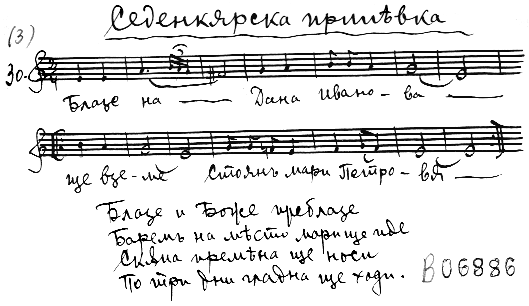 Седенкярска припѣвка
(3)
30.
Блазе на — Дана Ивано-ва —
3
ще взе-ме Стоянъ мари Петро-вѫтъ —
Блазе и Боже преблазе
Баремъ на мѣсто мари ще иде
Скѫпа премѣна ще носи
По три дни гладна ще ходи.
B06886